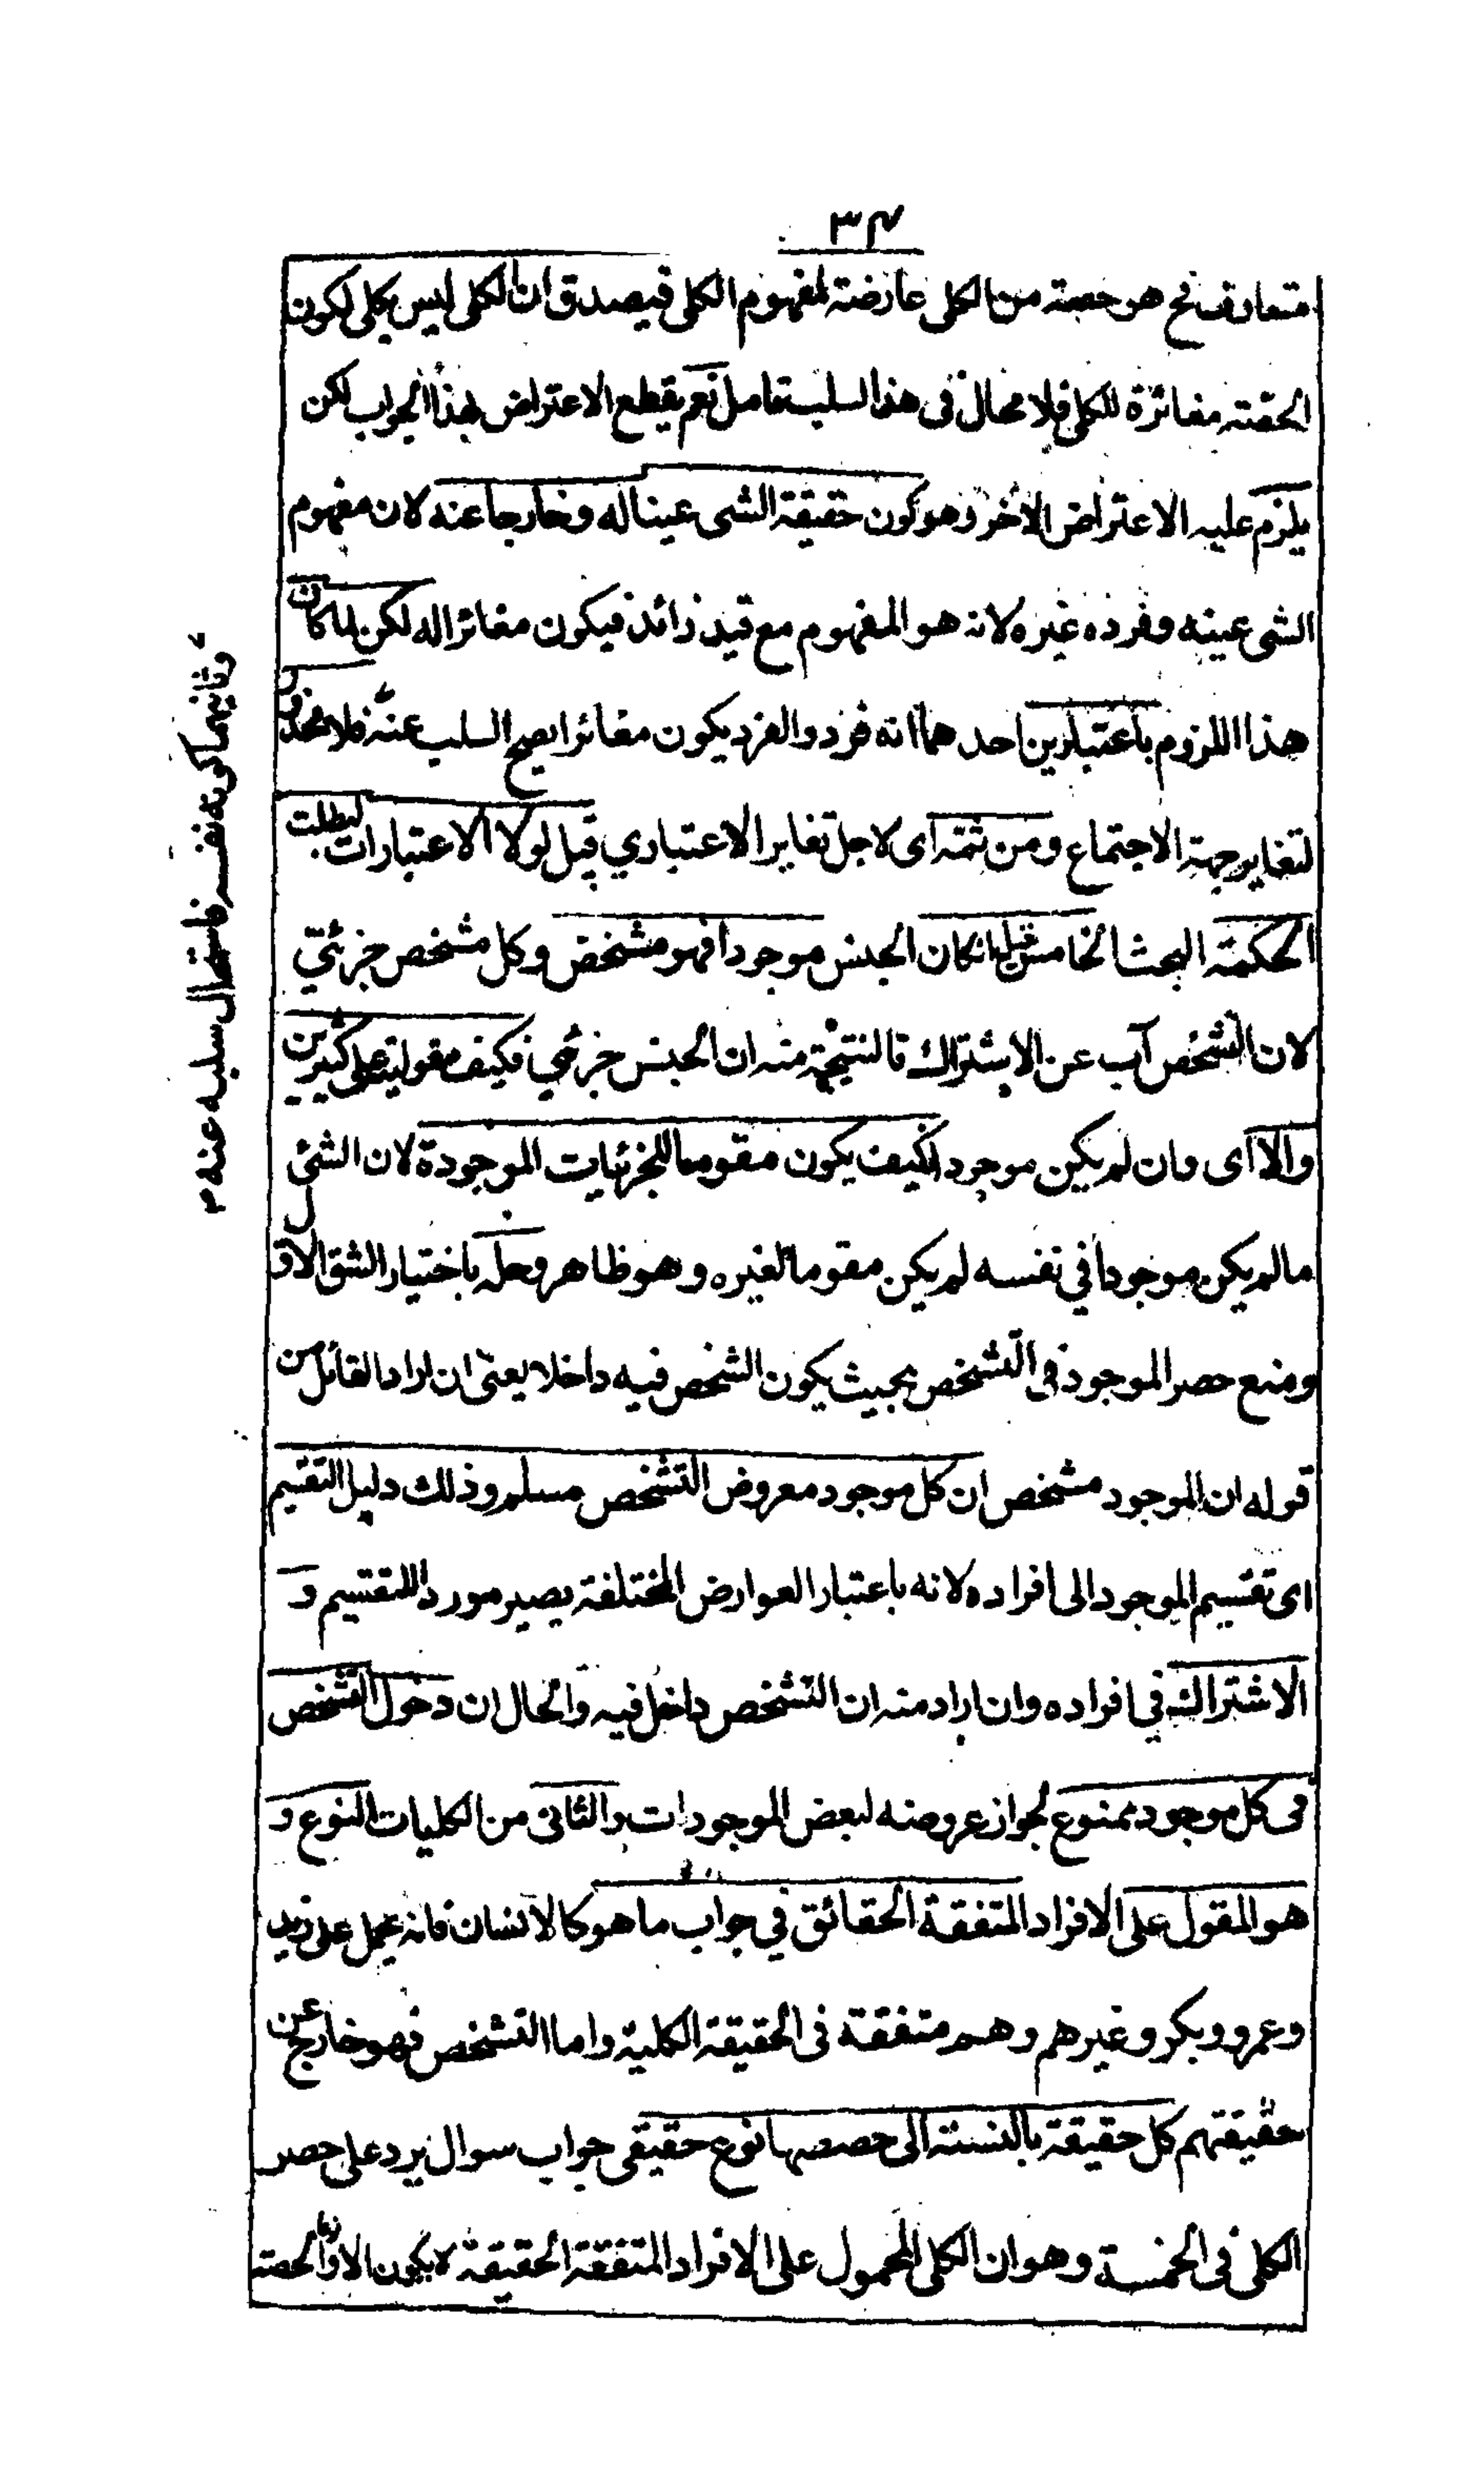 ٣٤
متعارف فح هو حصة من الكلى عارضة لمفهوم الكلى فيصدق ان الكلى ليس بكلى لكون
الحصة مغائرة للكلى فلا محال فى هذا السلب تامل نعم يقطع الاعتراض بهذا الجواب لكن
يلزم عليه الاعتراض الأخر وهو كون حقيقة الشى عينا له وخارجا عنه لان مفهوم
الشى عينه وفرده غيره لانه هو المفهوم مع قيد زائد فيكون مغائرا له لكن لما كان
هذا اللزوم باعتبارين احدهما انه فرد والفرد يكون مغائرا يصح السلب عنه فلا محذور
لتغاير جهة الاجتماع ومن ثمه اى لاجل تغاير الاعتباري قيل لولا الاعتبارات لبطلت
الحكمة البحث الخامس قيل ان كان الجنس موجودا فهو مشخص وكل مشخص جزئي
لان الشخص آب عن الاشتراك فالنتيجة منه ان الجنس جزئي فكيف مقوليته على كثيرين
والا اى وان لم يكن موجود افكيف يكون مقوما للجزئيات الموجودة لان الشئ
مالم يكن موجودا في نفسه لم يكن مقوما لغيره وهو ظاهر وحله باختيار الشق الاول
ومنع حصر الموجود فى التشخص بحيث يكون الشخص فيه داخلا يعنى ان اراد القائل من
قوله ان الموجود مشخص ان كل موجود معروض التشخص مسلم وذلك دليل التقسيم
اى تقسيم الموجود الى افراده لانه باعتبار العوارض المختلفة يصير مورد اللتقسيم و
الاشتراك في افراده وان اراد منه ان التشخص داخل فيه والحال ان دخول التشخص
فى كل موجود ممنوع لجواز عروضه لبعض الموجودات والثانى من الكليات النوع و
هو المقول على الافراد المتفقة الحقائق في جواب ما هو كالانسان فانه يحمل على زيد
وعمرو وبكر وغيرهم وهم متفقة فى الحقيقة الكلية واما التشخص فهو خارج عن
حقيقتهم كل حقيقة بالنسبة الى حصصها نوع حقيقى جواب سوال يرد على حصر
الكلى فى الخمسة وهو ان الكلى المحمول على الافراد المتفقة الحقيقة لا يكون الا والحصة
وثانيهما كونه نفسه فاستحال سلبه عنه ٢